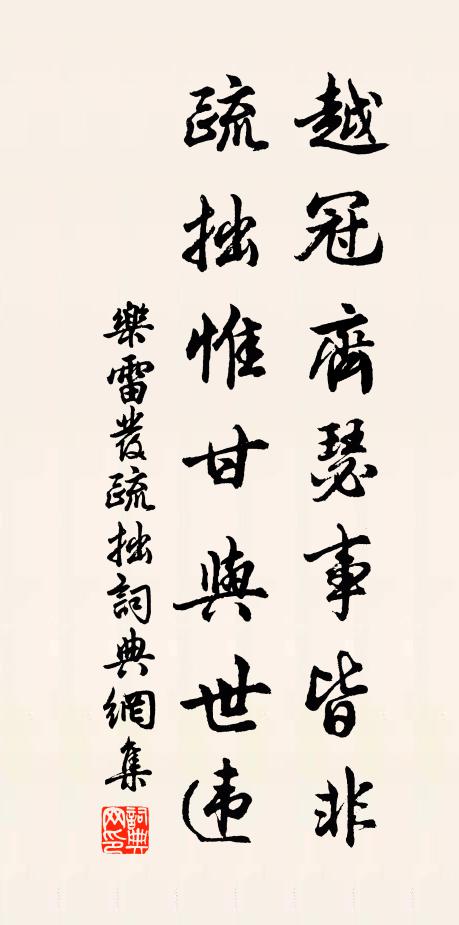 越冠齊瑟事皆非
疏拙惟甘與世违
樂雷發疏拙詞典網集
詞典